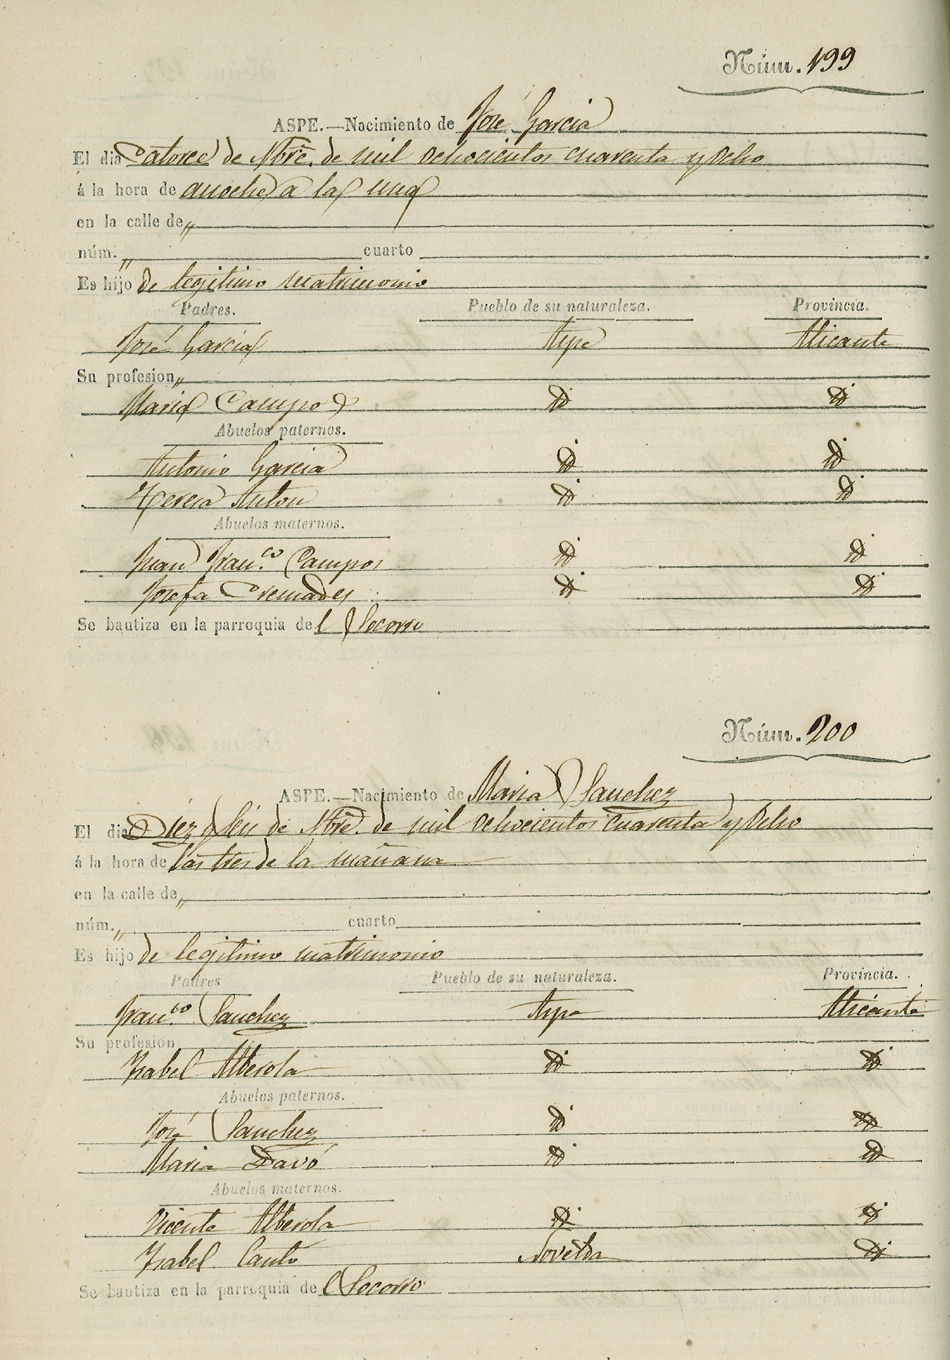 Núm. 199
ASPE.—Nacimiento de José Garcia
El dia Catorce de Nbre. de mil ochocientos cuarenta y Ocho
á la hora de anoche a la una
en la calle de „
núm. „ cuarto
Es hijo de legitimo matrimonio
Padres. Pueblo de su naturaleza. Provincia.
José Garcia Aspe Alicante
Su profesion „
Maria Campos id id
Abuelos paternos.
Antonio Garcia id id
Teresa Anton id id
Abuelos maternos.
Juan Fran.co Campos id id
Josefa Cremades id id
Se bautiza en la parroquia del Socorro
Núm. 200
ASPE.—Nacimiento de Maria Sanchez
El dia Diez y Seis de Nbre. de mil ochocientos cuarenta y Ocho
á la hora de las tres de la mañana
en la calle de „
núm. „ cuarto
Es hijo de legitimo matrimonio
Padres Pueblo de su naturaleza. Provincia.
Fran.co Sanchez Aspe Alicante
Su profesion
Ysabel Alberola id id
Abuelos paternos.
José Sanchez id id
Maria Davó id id
Abuelos maternos.
Vicente Alberola id id
Ysabel Cantó Novelda id
Se bautiza en la parroquia del Socorro